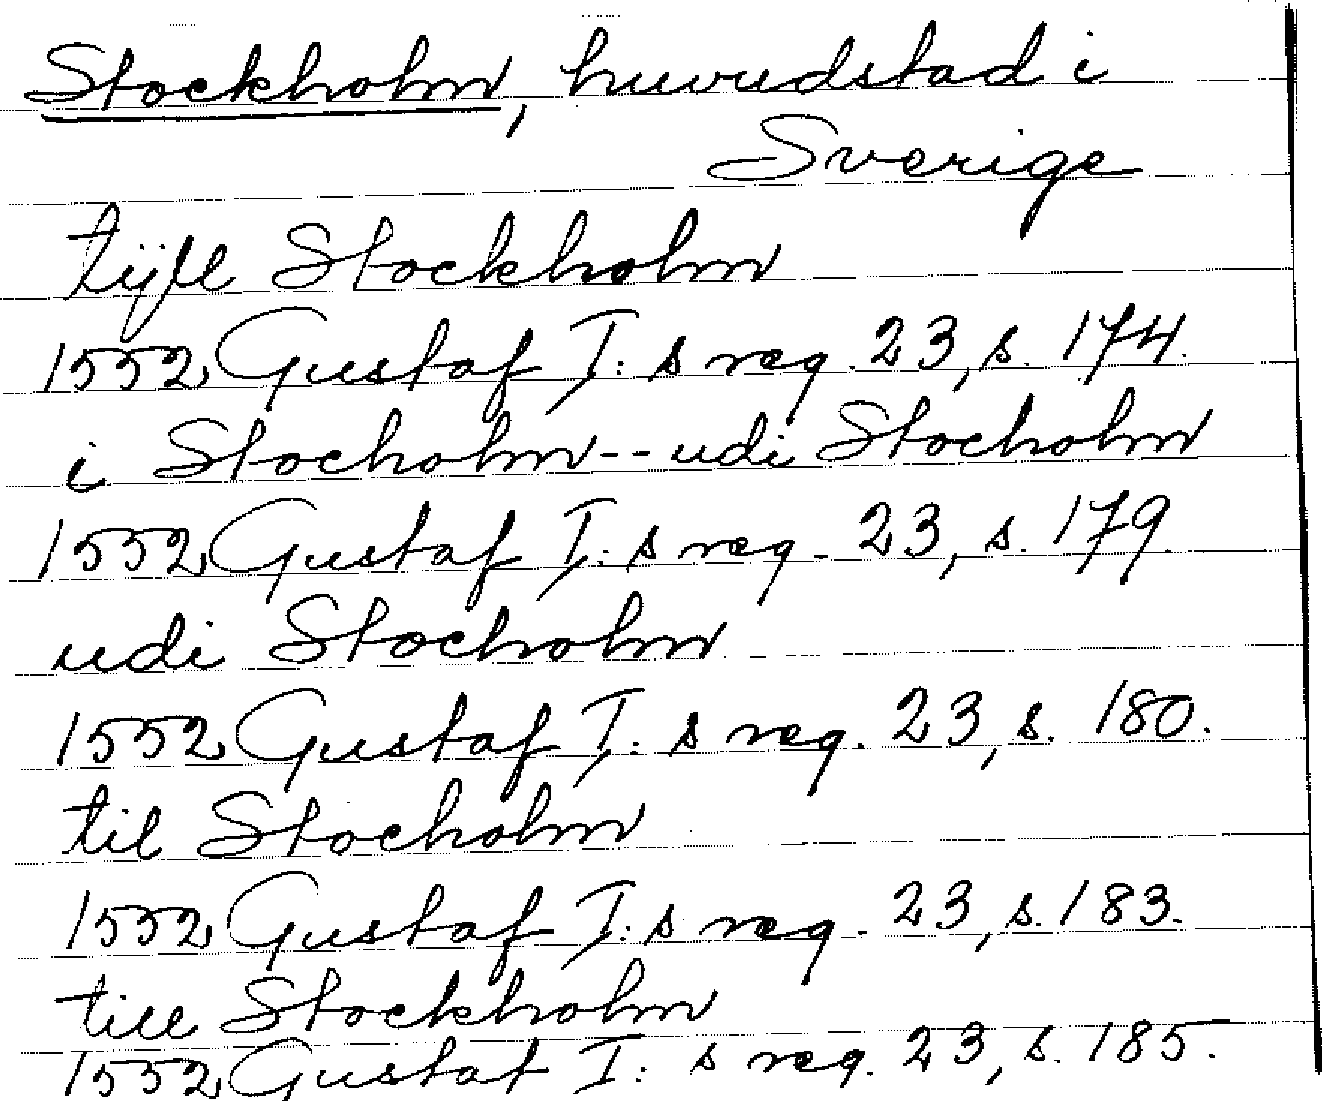 Stockholm, huvudstad i
Sverige
tijll Stockholm
1552 Gustaf I:s reg. 23, s. 174.
i Stocholm -- udi Stocholm
1552 Gustaf I:s reg. 23, s. 179.
udi Stocholm
1552 Gustaf I:s reg. 23, s. 180.
til Stocholm
1552 Gustaf I:s reg. 23, s. 183.
till Stockholm
1552 Gustaf I:s reg. 23, s. 185.